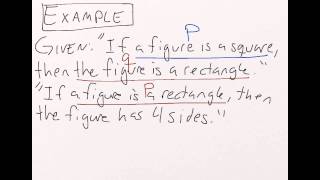 EXAMPLE
P
GIVEN: "If a figure is a square,
q
then the figure is a rectangle."
P
"If a figure is a rectangle, then
the figure has 4 sides."